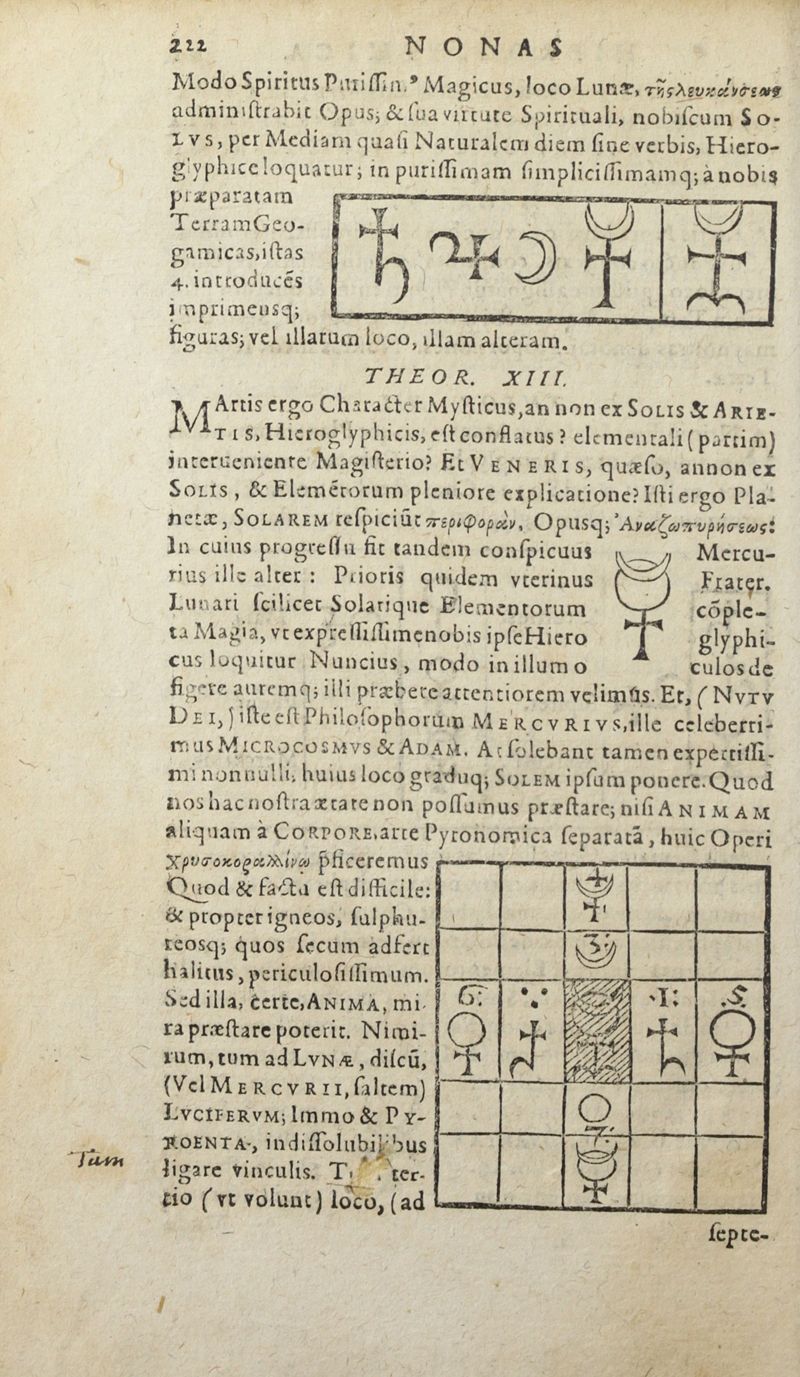 222 NONAS
Modo Spiritus Puriſſim⁹ Magicus, loco Lunæ, τῆς λευκάνσεως
adminiſtrabit Opus; & ſua virtute Spirituali, nobiſcum So-
LVS, per Mediam quaſi Naturalem diem ſine verbis, Hiero-
glyphice loquatur; in puriſſimam ſimpliciſſimamq; à nobis
præparatam
Terram Geo-
gamicas, iſtas
4. introducēs
imprimensq;
figuras; vel illarum loco, illam alteram.
THEOR. XIII.
MArtis ergo Character Myſticus, an non ex SOLIS & ARIE-
TIS, Hieroglyphicis, eſt conflatus? elementali (partim)
interueniente Magiſterio? Et VENERIS, quæſo, annon ex
SOLIS, & Elemētorum pleniore explicatione? Iſti ergo Pla-
netæ, SOLAREM reſpiciūt περιφορὰν, Opusq; Ἀναζωπυρήσεως:
In cuius progreſſu fit tandem conſpicuus Mercu-
rius ille alter: Prioris quidem vterinus Frater.
Lunari ſcilicet Solarique Elementorum cōple-
ta Magia, vt expreſſiſſime nobis ipſe Hiero glyphi-
cus loquitur Nuncius, modo in illum o culos de
figere auremq; illi præbere attentiorem velimus. Et, (NVTV
DEI,) iſte eſt Philoſophorum MERCVRIVS, ille celeberri-
mus MICROCOSMVS & ADAM. At ſolebant tamen expertiſſi-
mi nonnulli, huius loco graduq; SOLEM ipſum ponere. Quod
nos hac noſtra ætate non poſſumus præſtare; niſi ANIMAM
aliquam à CORPORE, arte Pyronomica ſeparatā, huic Operi
χρυσοκοραλλίνῳ p̄ficeremus
Quod & factu eſt difficile:
& propter igneos, ſulphu-
reosq; quos ſecum adfert
halitus, periculoſiſſimum.
Sed illa, certe, ANIMA, mi-
ra præſtare poterit. Nimi-
rum, tum ad LVNÆ, diſcū,
(Vel MERCVRII, ſaltem)
LVCIFERVM; Immo & PY-
ROENTA, indiſſolubilibus
ligare vinculis. ter-
tio (vt volunt) loco, (ad
4
3
6 2 1 5
7
Tum
ſepte-